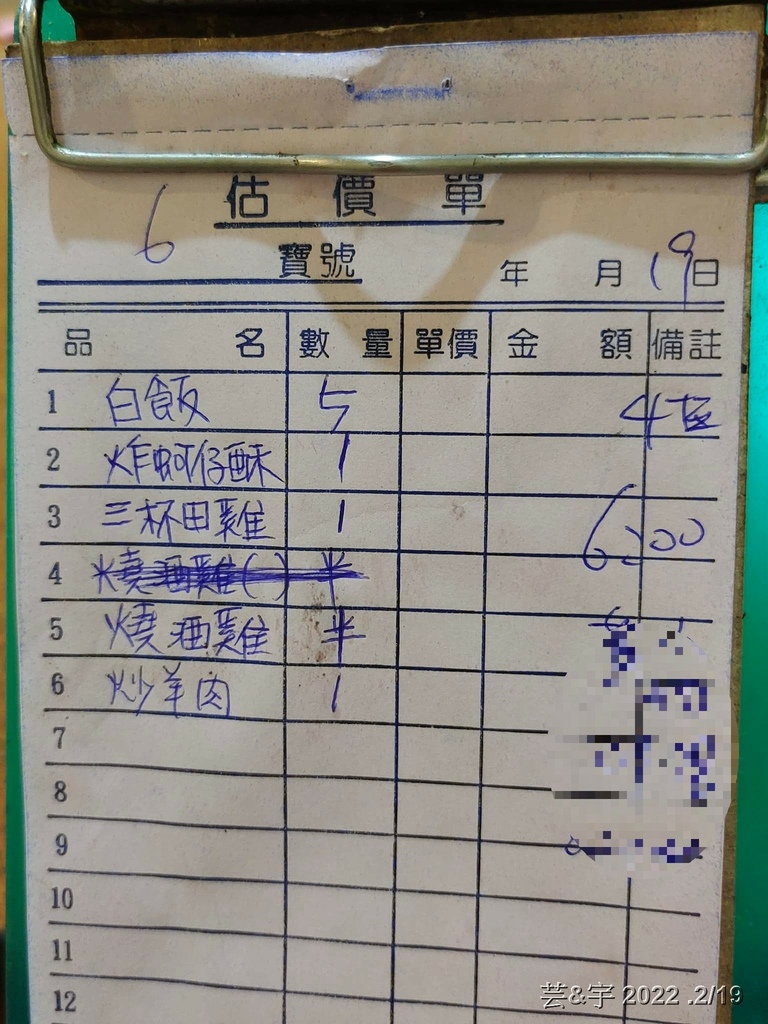 估價單
6 寶號 年 月 19日
品名 數量 單價 金額 備註
1 白飯 5 4位
2 炸蚵仔酥 1
3 三杯田雞 1 6:00
4 燒酒雞( ) 半
5 燒酒雞 半
6 炒羊肉 1
7
8
9
10
11
12
芸&宇 2022 .2/19